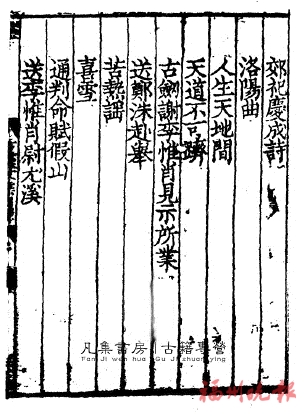 郊祀慶成詩
洛陽曲
人生天地間
天道不可躋
古劍謝李惟肖見示所業
送鄭洙赴舉
苦熱謡
喜雪
通判命賦假山
送李惟肖尉尤溪
凡集書房 | 古籍專營
Fan Ji wen hua Gu Ji zhuan ying
福州晚报